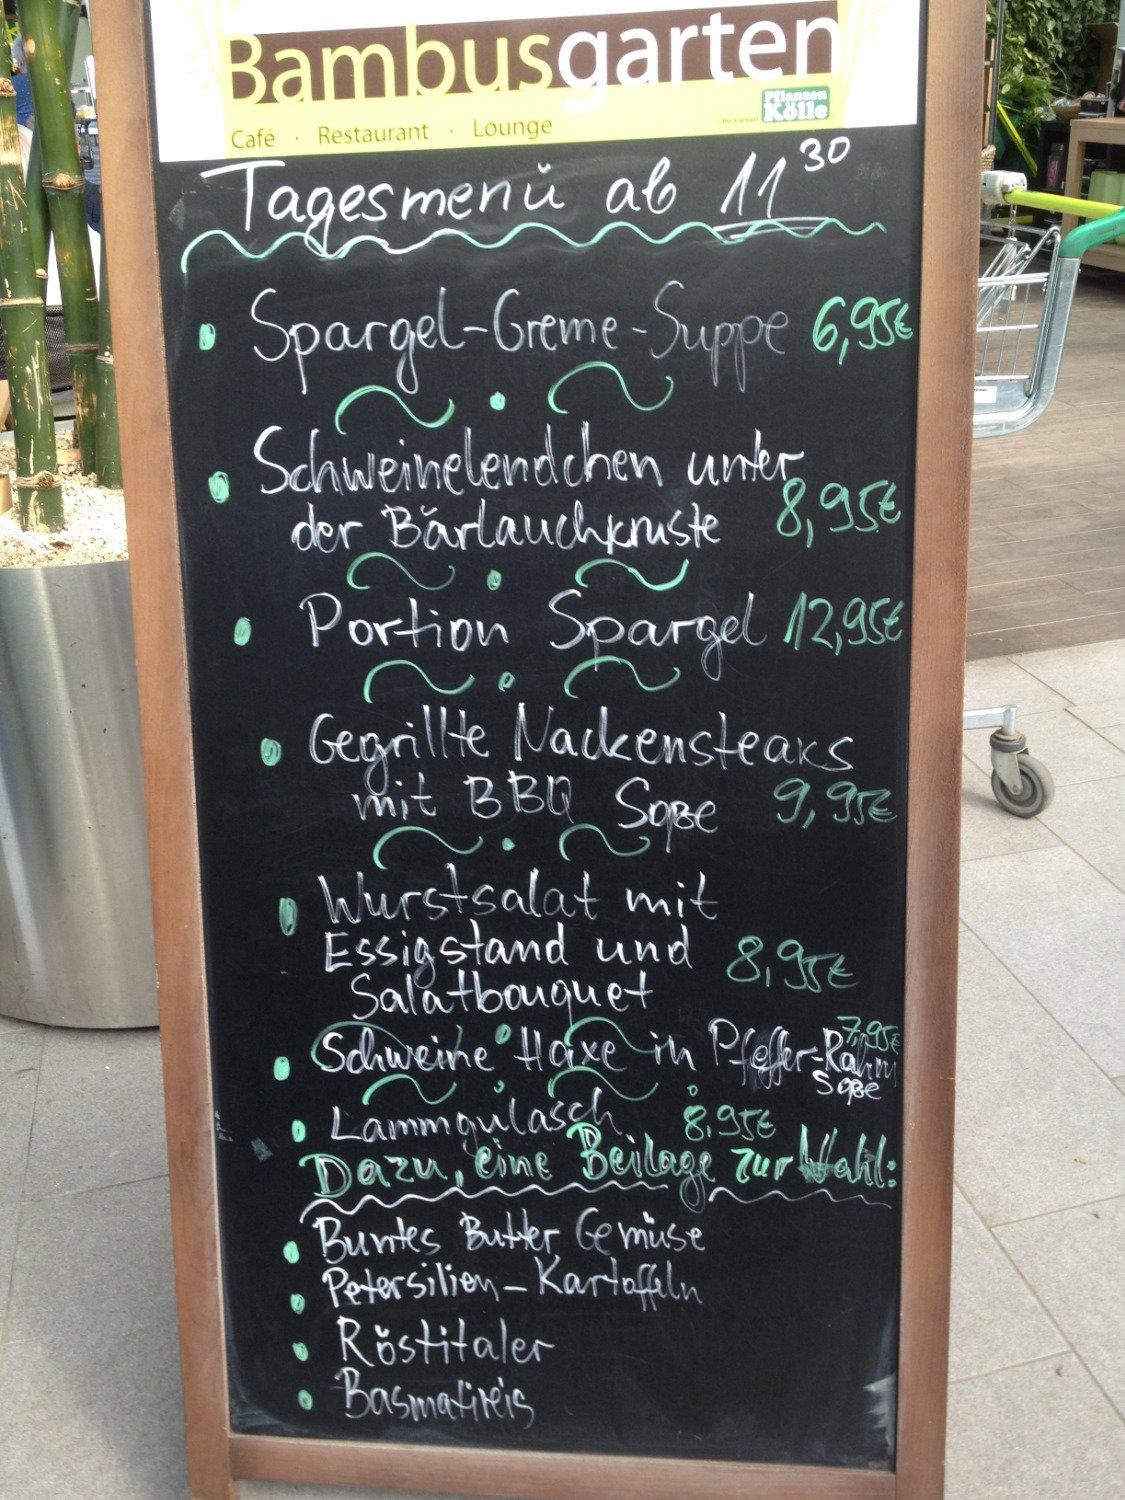 Bambusgarten
Pflanzen
Kölle
Café · Restaurant · Lounge
Tagesmenü ab 11 30
Spargel-Creme-Suppe 6,95€
Schweinelendchen unter
der Bärlauchkruste 8,95€
Portion Spargel 12,95€
Gegrillte Nackensteaks
mit BBQ Soße 9,95€
Wurstsalat mit
Essigstand und 8,95€
Salatbouquet
Schweine Haxe in Pfeffer-Rahm 7,95€
Soße
Lammgulasch 8,95€
Dazu, eine Beilage zur Wahl:
Buntes Butter Gemüse
Petersilien-Kartoffeln
Röstitaler
Basmatireis